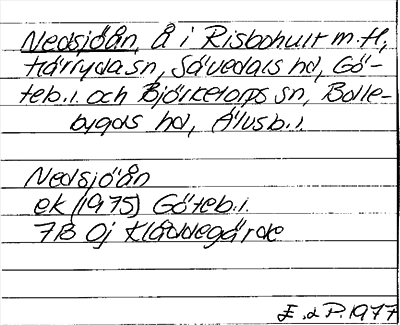 Nedsjöån, Å i Risbohult m.fl,
Härryda sn, Sävedals hd, Gö-
teb.l. och Björketorps sn, Bolle-
bygds hd, Älvsb.l.
Nedsjöån
ek (1975) Göteb.l.
7B 0j Kläddegärde
E. d P. 1977